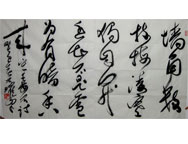 墙角數
枝梅凌寒
獨自開
遥知不是雪
為有暗香
来